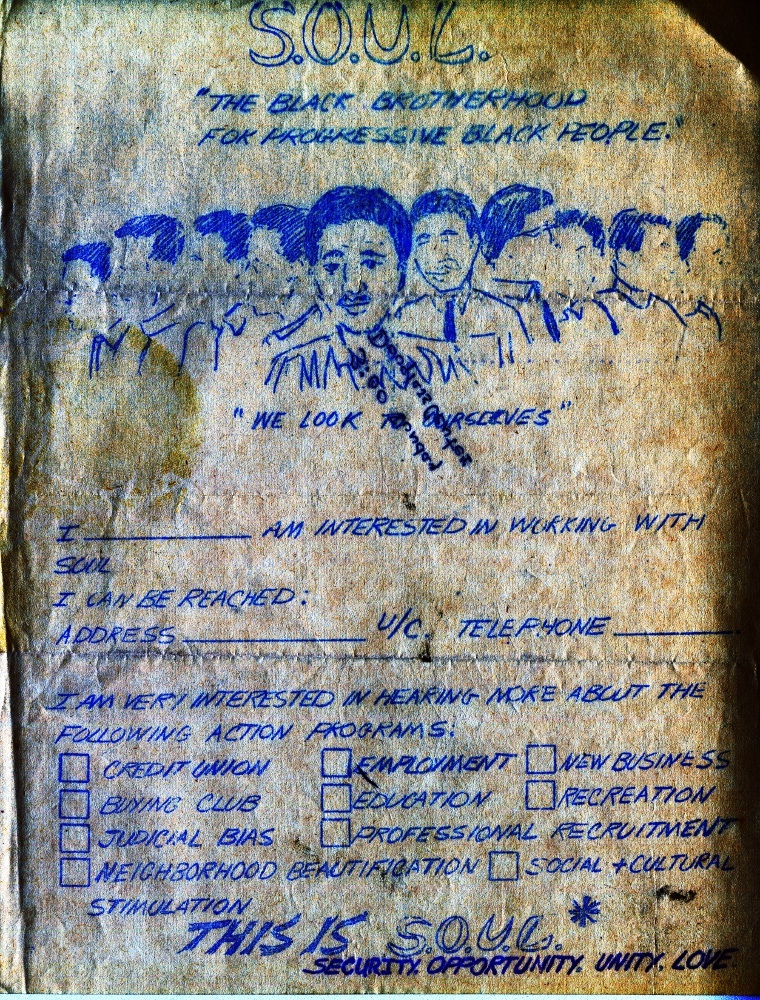 S.O.U.L.
"THE BLACK BROTHERHOOD
FOR PROGRESSIVE BLACK PEOPLE."
"WE LOOK TO OURSELVES"
I ____________ AM INTERESTED IN WORKING WITH
SOUL
I CAN BE REACHED:
ADDRESS ____________ U/C. TELEPHONE ________
I AM VERY INTERESTED IN HEARING MORE ABOUT THE
FOLLOWING ACTION PROGRAMS:
CREDIT UNION EMPLOYMENT NEW BUSINESS
BUYING CLUB EDUCATION RECREATION
JUDICIAL BIAS PROFESSIONAL RECRUITMENT
NEIGHBORHOOD BEAUTIFICATION SOCIAL + CULTURAL
STIMULATION
THIS IS S.O.U.L.*
SECURITY. OPPORTUNITY. UNITY. LOVE.